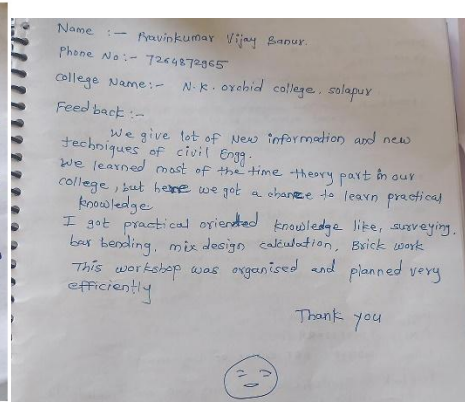 Name :- Pravinkumar Vijay Banur.
Phone No :- 7264872965
College Name:- N.K. orchid college, solapur
Feed back :-
We give lot of New information and new
techniques of civil Engg.
We learned most of the time theory part in our
college, but here we got a chance to learn practical
knowledge
I got practical oriented knowledge like, surveying,
bar bending, mix design calculation, Brick work
This workshop was organised and planned very
efficiently
Thank you